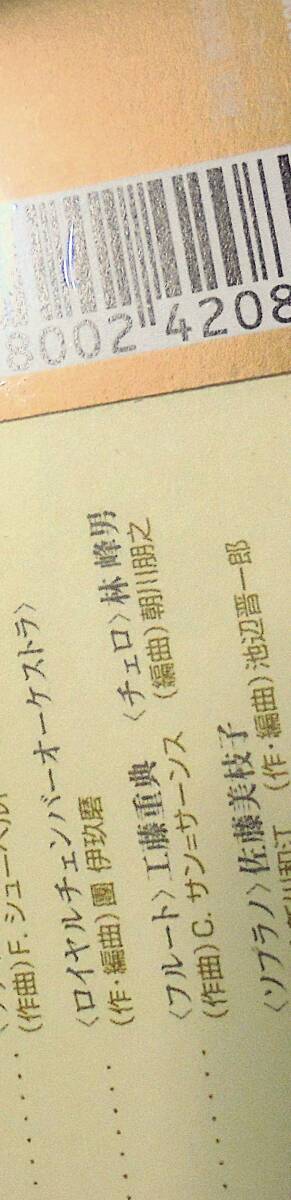 8002 4208
(作曲)F. シューベルト
〈ロイヤルチェンバーオーケストラ〉
(作・編曲)團 伊玖磨
〈フルート〉工藤重典 〈チェロ〉林 峰男
(作曲)C. サン=サーンス (編曲)朝川朋之
〈ソプラノ〉佐藤美枝子
(作・編曲)池辺晋一郎